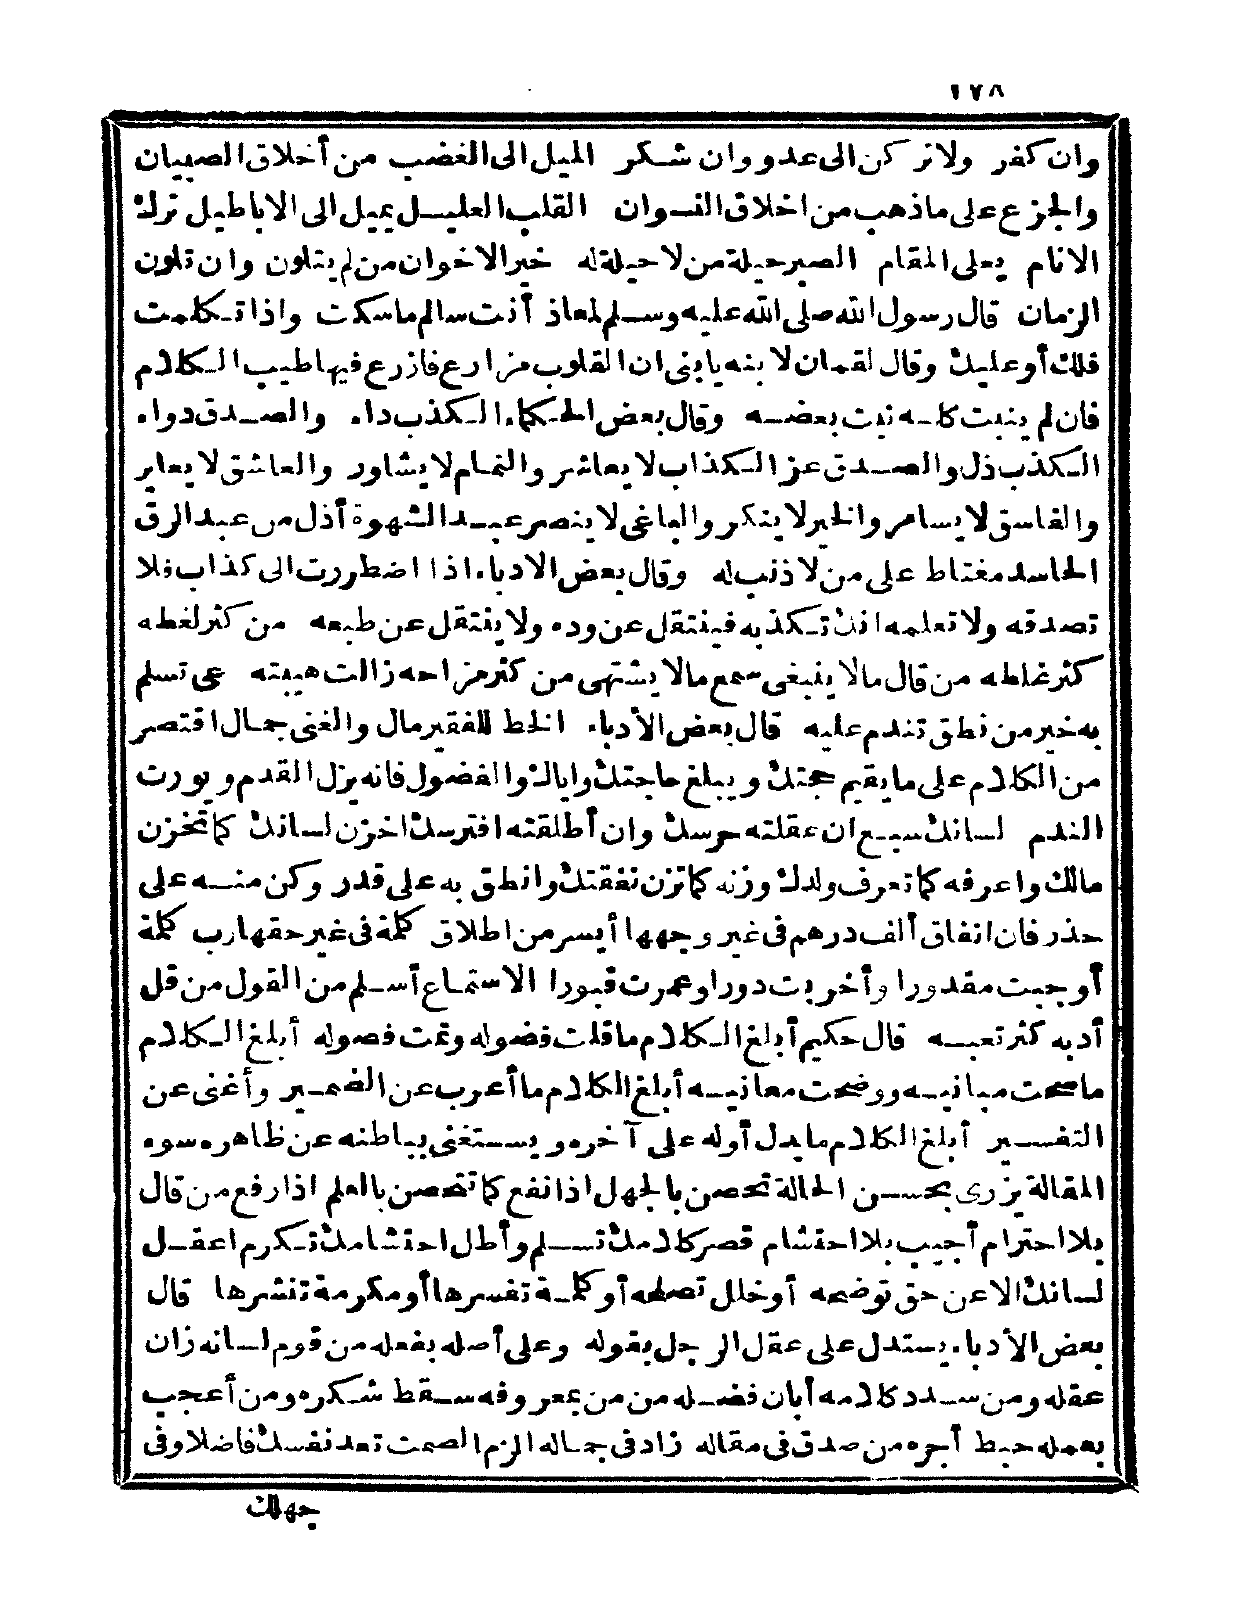 ١٧٨
وان كفر ولا تركن الى عدو وان شكر الميل الى الغضب من أخلاق الصبيان
والجزع على ما ذهب من اخلاق النسوان القلب العليل يميل الى الاباطيل ترك
الانام يعلى المقام الصبر حيلة من لا حيلة له خير الاخوان من لم يتلون وان تلون
الزمان قال رسول الله صلى الله عليه وسلم لمعاذ أنت سالم ما سكت واذا تكلمت
فلك أو عليك وقال لقمان لابنه يا بنى ان القلوب مزارع فازرع فيها طيب الكلام
فان لم ينبت كله نبت بعضه وقال بعض الحكماء الكذب داء والصدق دواء
الكذب ذل والصدق عز الكذاب لا يعاشر والنمام لا يشاور والعاشق لا يعاير
والفاسق لا يسامر والخير لا ينكر والباغى لا ينصر عبد الشهوة أذل من عبد الرق
الحاسد مغتاط على من لا ذنب له وقال بعض الادباء اذا اضطررت الى كذاب فلا
تصدقه ولا تعلمه انك تكذبه فينتقل عن وده ولا ينتقل عن طبعه من كثر لغطه
كثر غلطه من قال ما لا ينبغى سمع ما لا يشتهى من كثر مزاحه زالت هيبته عى تسلم
به خير من نطق تندم عليه قال بعض الأدباء الخط للفقير مال والغنى جمال اقتصر
من الكلام على ما يقيم حجتك ويبلغ حاجتك واياك والفضول فانه يزل القدم ويورت
الندم لسانك سبع ان عقلته حرسك وان أطلقته افترسك اخزن لسانك كما تخزن
مالك واعرفه كما تعرف ولدك وزنه كما تزن نفقتك وانطق به على قدر وكن منه على
حذر فان انفاق ألف درهم فى غير وجهها أيسر من اطلاق كلمة فى غير حقها رب كلمة
أوجبت مقدورا وأخربت دورا وعمرت قبورا الاستماع أسلم من القول من قل
أدبه كثر تعبه قال حكيم أبلغ الكلام ما قلت فضوله وتمت فصوله أبلغ الكلام
ما صحت مبانيه ووضحت معانيه أبلغ الكلام ما أعرب عن الضمير وأغنى عن
التفسير أبلغ الكلام ما يدل أوله على آخره ويستغنى بباطنه عن ظاهره سوء
المقالة يزرى بحسن الحالة تحصن بالجهل اذا نفع كما تتحصن بالعلم اذا رفع من قال
بلا احترام أجيب بلا احتشام قصر كلامك تسلم وأطل احتشامك تكرم اعقل
لسانك الا عن حق توضحه أو خلل تصلحه أو كلمة تفسرها أو مكرمة تنشرها قال
بعض الأدباء يستدل على عقل الرجل بقوله وعلى أصله بفعله من قوم لسانه زان
عقله ومن سدد كلامه أبان فضله من من بمعروفه سقط شكره ومن أعجب
بعمله حبط أجره من صدق فى مقاله زاد فى جماله الزم الصمت تعد نفسك فاضلا وفى
جهلك